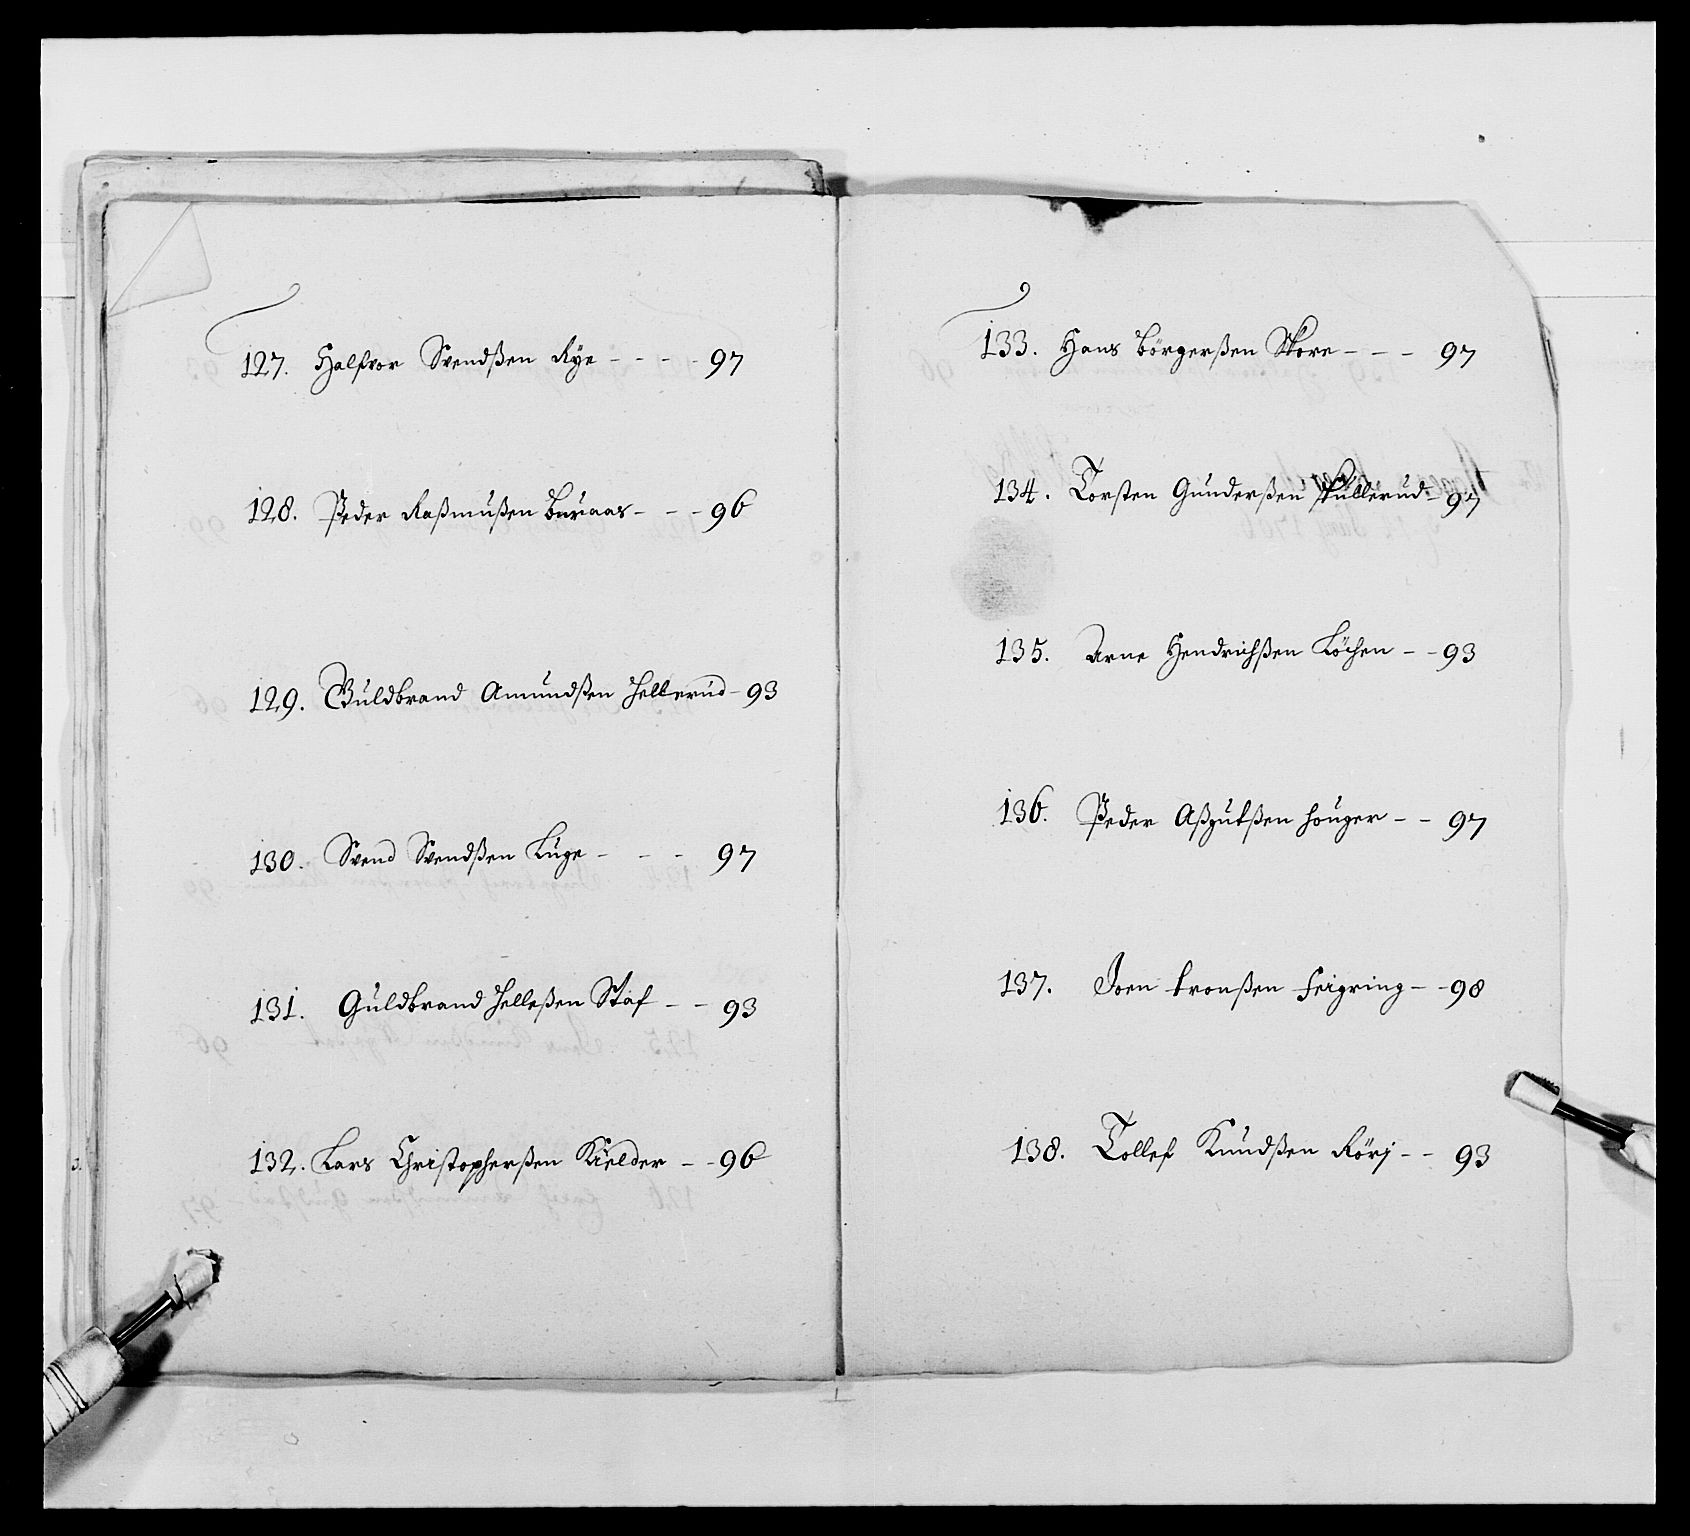 127. Halfvor Svendßen Rye - - - - 97
128. Peder Raßmußen Buraas - - - 96
129. Guldbrand Amundßen Hellerud - 93
130. Svend Svendßen Luge - - - 97
131. Guldbrand Helleßen Staf - - 93
132. Lars Christopherßen Kielder - - 96
133. Hans Börgerßen Skore - - - 97
134. Torsten Gunderßen Skullerud - 97
135. Arne Hendrichßen Löchen - - 93
136. Peder Aßgutßen Houger - - 97
137. Joen tronßen Feigring - - 98
138. Tollef Knudßen Rörj - - 93